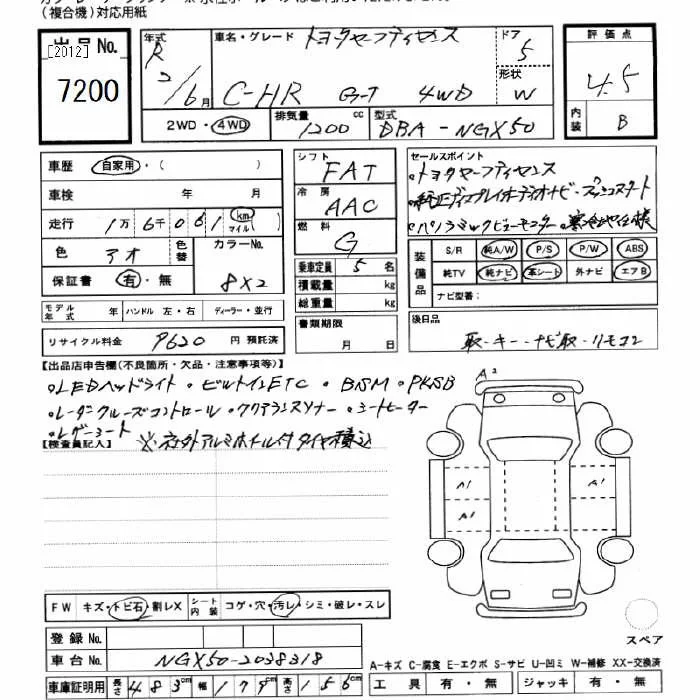 (複合機)対応用紙
出品No.
[2012]
7200
年式 R 2/6月
車名・グレード トヨタセーフティセンス
C-HR G-T 4WD
ドア 5
形状 W
2WD・4WD
排気量 1200 cc
型式 DBA-NGX50
評価点 4.5
内装 B
車歴 自家用・( )
車検 年 月
走行 1万6千061 km マイル( )
色 アオ 色替 カラーNo. 8X2
保証書 有・無
シフト FAT
冷房 AAC
燃料 G
乗車定員 5名
積載量 kg
総重量 kg
セールスポイント
・トヨタセーフティセンス
・純正ディスプレイオーディオナビ・プッシュスタート
・パノラミックビューモニター・寒冷地仕様
装備品 S/R 純A/W P/S P/W ABS
純TV 純ナビ 革シート 外ナビ エアB
ナビ型番:
モデル年式 年 ハンドル 左・右 ディーラー・並行
リサイクル料金 9620 円 預託済
書類期限 月 日
後日品
取・キー・ナビ取・リモコン2
【出品店申告欄(不良箇所・欠品・注意事項等)】
・LEDヘッドライト・ビルトインETC・BSM・PKSB
・レーダークルーズコントロール・クリアランスソナー・シートヒーター
・レザーシート
※社外アルミホイール付タイヤ積込
【検査員記入】
A2
A1
A1
A1
FW キズ・トビ石・割レX シート内装 コゲ・穴・汚レ・シミ・破レ・スレ
登録No.
車台No. NGX50-2038318
車庫証明用 長さ 483cm 幅 179cm 高さ 156cm
スペア
A-キズ C-腐食 E-エクボ S-サビ U-凹ミ W-補修 XX-交換済
工具 有・無 ジャッキ 有・無